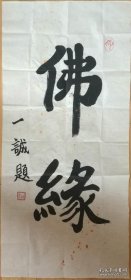 佛緣
一誠題